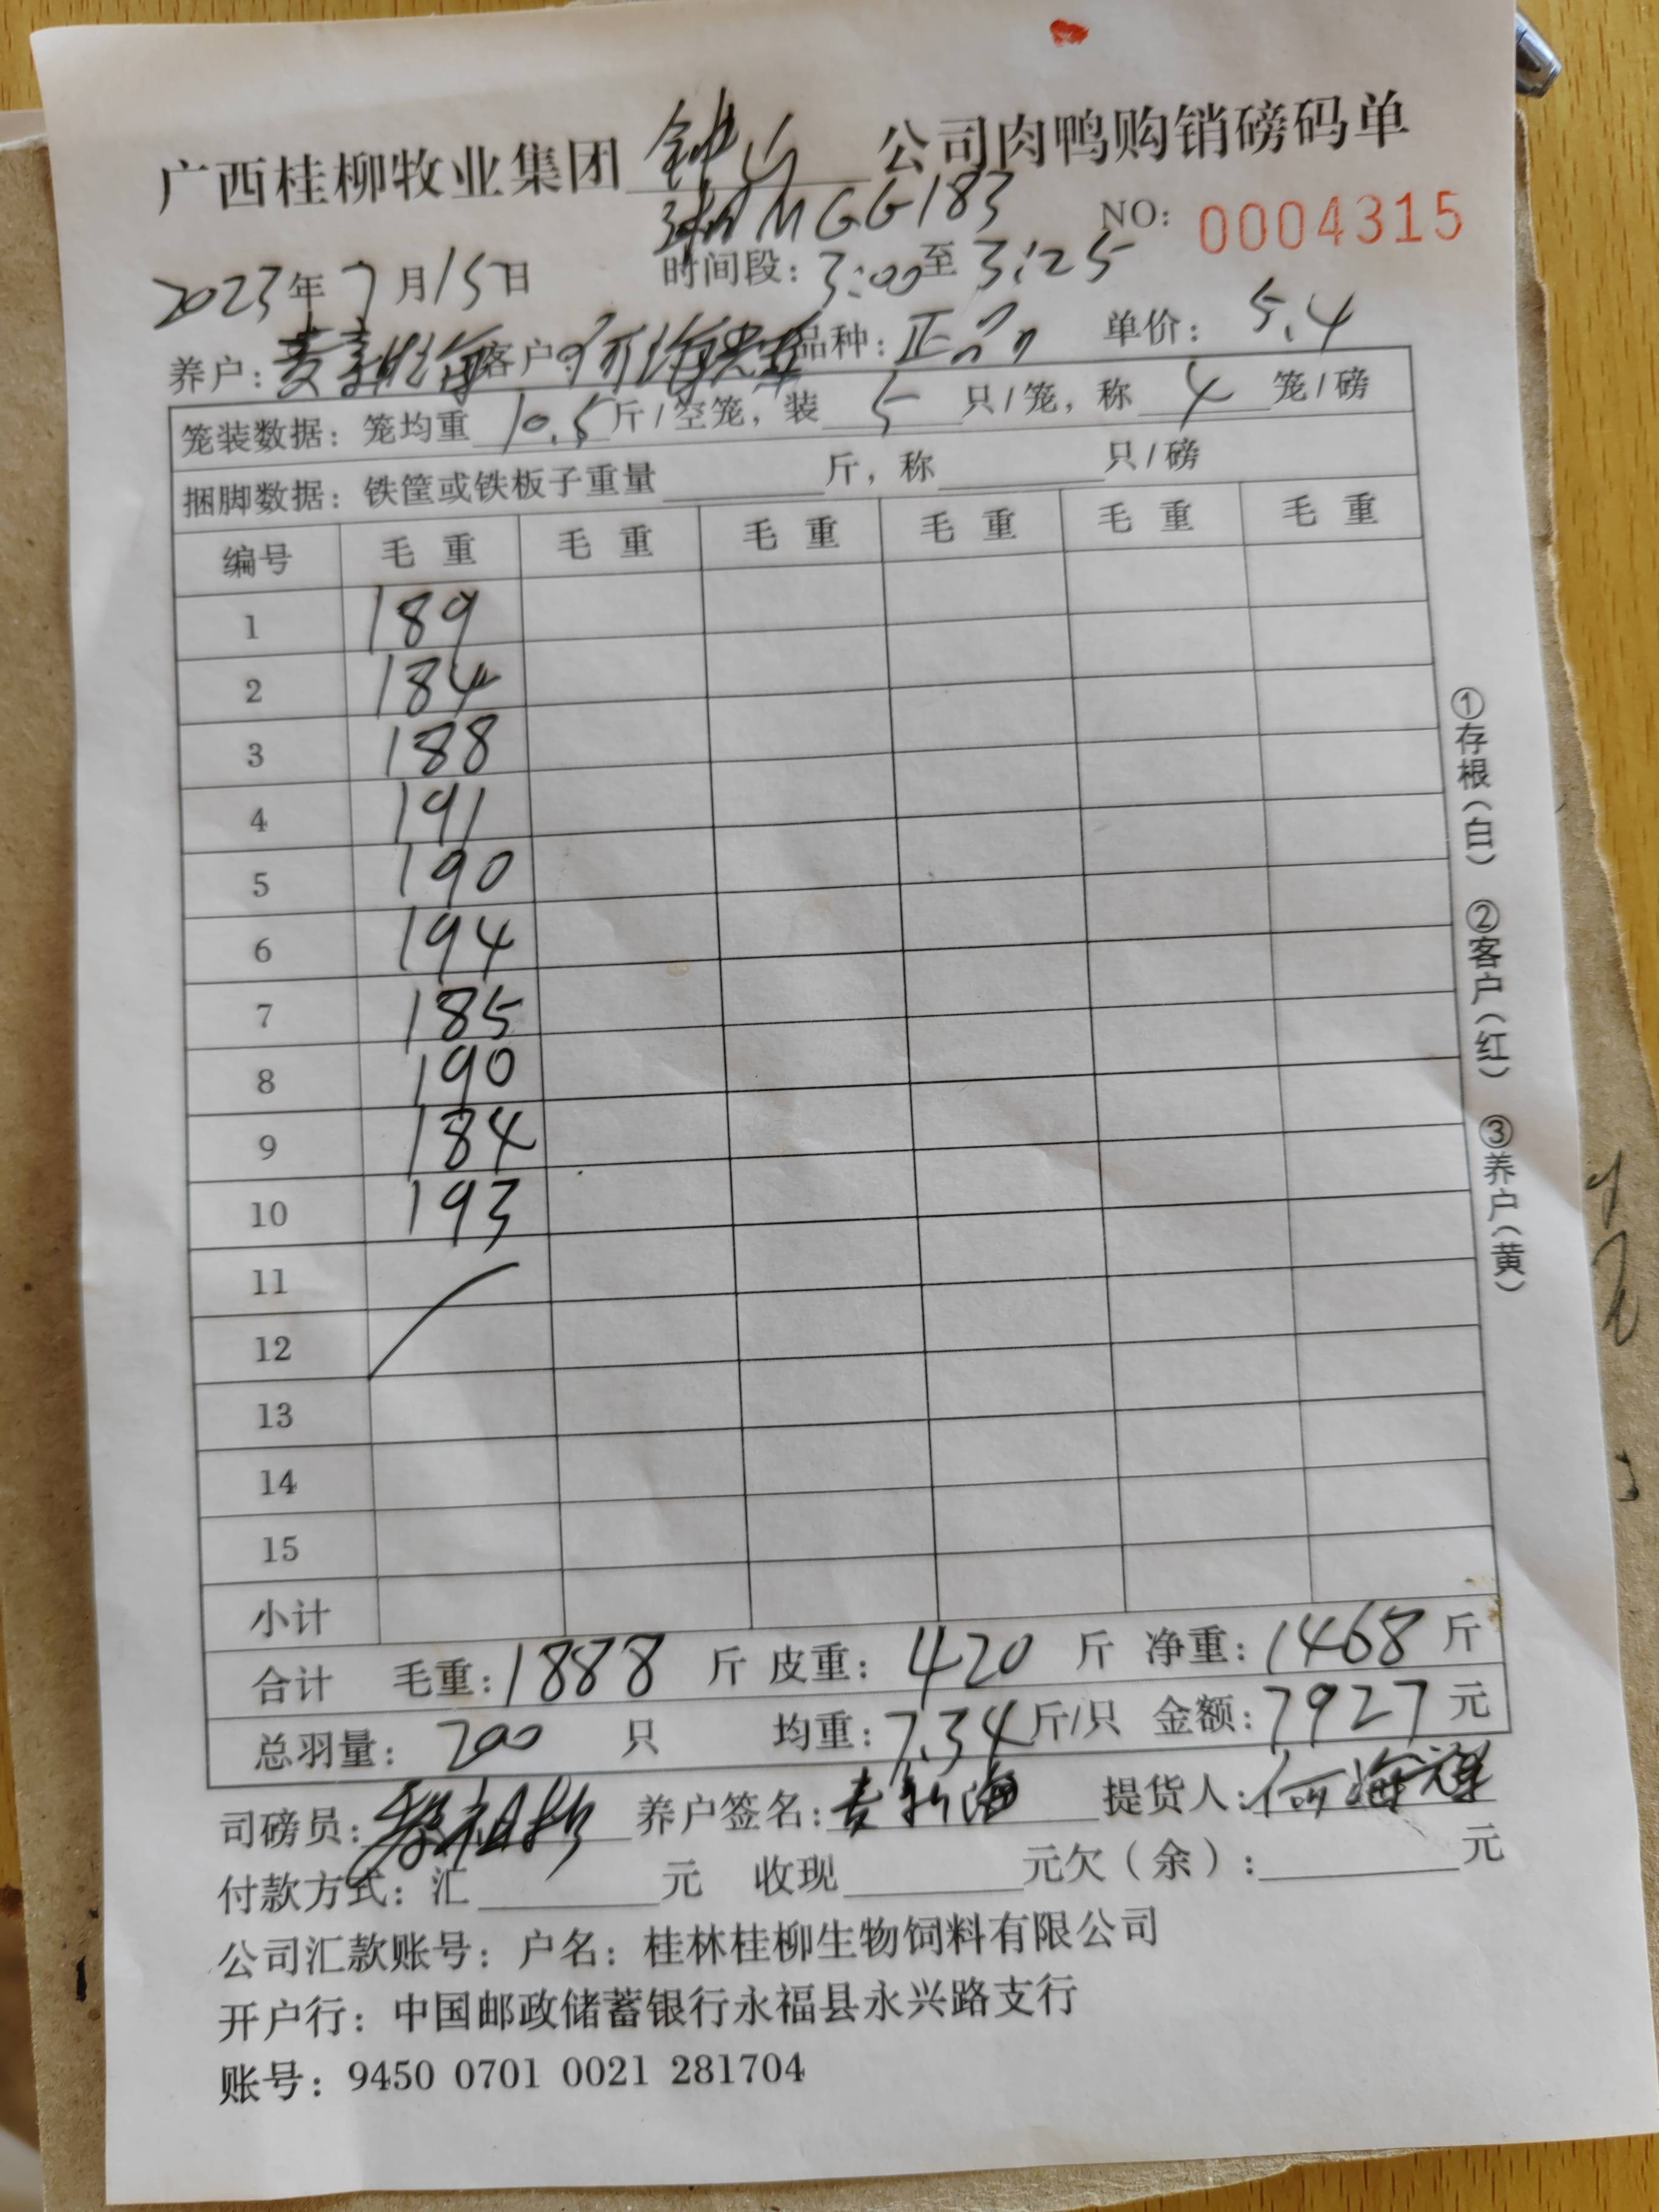 广西桂柳牧业集团 钟山 公司肉鸭购销磅码单
MGG183 NO: 0004315
2023年7月15日 时间段: 3:00至3:25
养户: 客户: 品种: 正品 单价: 5.4
笼装数据: 笼均重 10.5 斤/空笼, 装 5 只/笼, 称 4 笼/磅
捆脚数据: 铁筐或铁板子重量 斤, 称 只/磅
编号 毛重 毛重 毛重 毛重 毛重 毛重
1 189
2 184
3 188
4 191
5 190
6 194
7 185
8 190
9 184
10 193
11
12
13
14
15
小计
合计 毛重: 1888 斤 皮重: 420 斤 净重: 1468 斤
总羽量: 200 只 均重: 7.34 斤/只 金额: 7927 元
司磅员: 养户签名: 提货人: 何海
付款方式: 汇 元 收现 元欠(余): 元
公司汇款账号: 户名: 桂林桂柳生物饲料有限公司
开户行: 中国邮政储蓄银行永福县永兴路支行
账号: 9450 0701 0021 281704
①存根(白) ②客户(红) ③养户(黄)